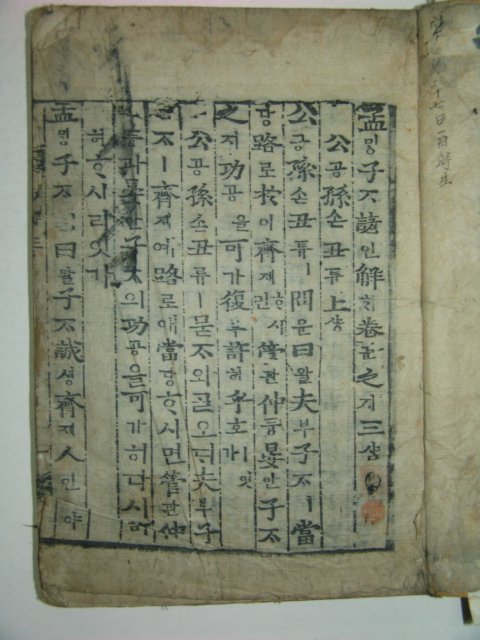 孟ᄆᆡᆼ子ᄌᆞ諺언解ᄒᆡ卷권之지三삼
公공孫손丑튜上샹
公공孫손丑튜ㅣ問문曰왈夫부子ᄌᆞㅣ當
당路로於어齊졔ᄒᆞ시면管관仲듕晏안子ᄌᆞ
之지功공을可가復부許허乎호ㅣ잇가
公공孫손丑튜ㅣ묻ᄌᆞ와ᄀᆞᆯ오ᄃᆡ夫부子
ᄌᆞㅣ齊졔예路로애當당ᄒᆞ시면管관仲
듕과晏안子ᄌᆞ의功공을可가히다시許
허ᄒᆞ시리잇가
孟ᄆᆡᆼ子ᄌᆞㅣ曰왈子ᄌᆞ誠셩齊졔人인야